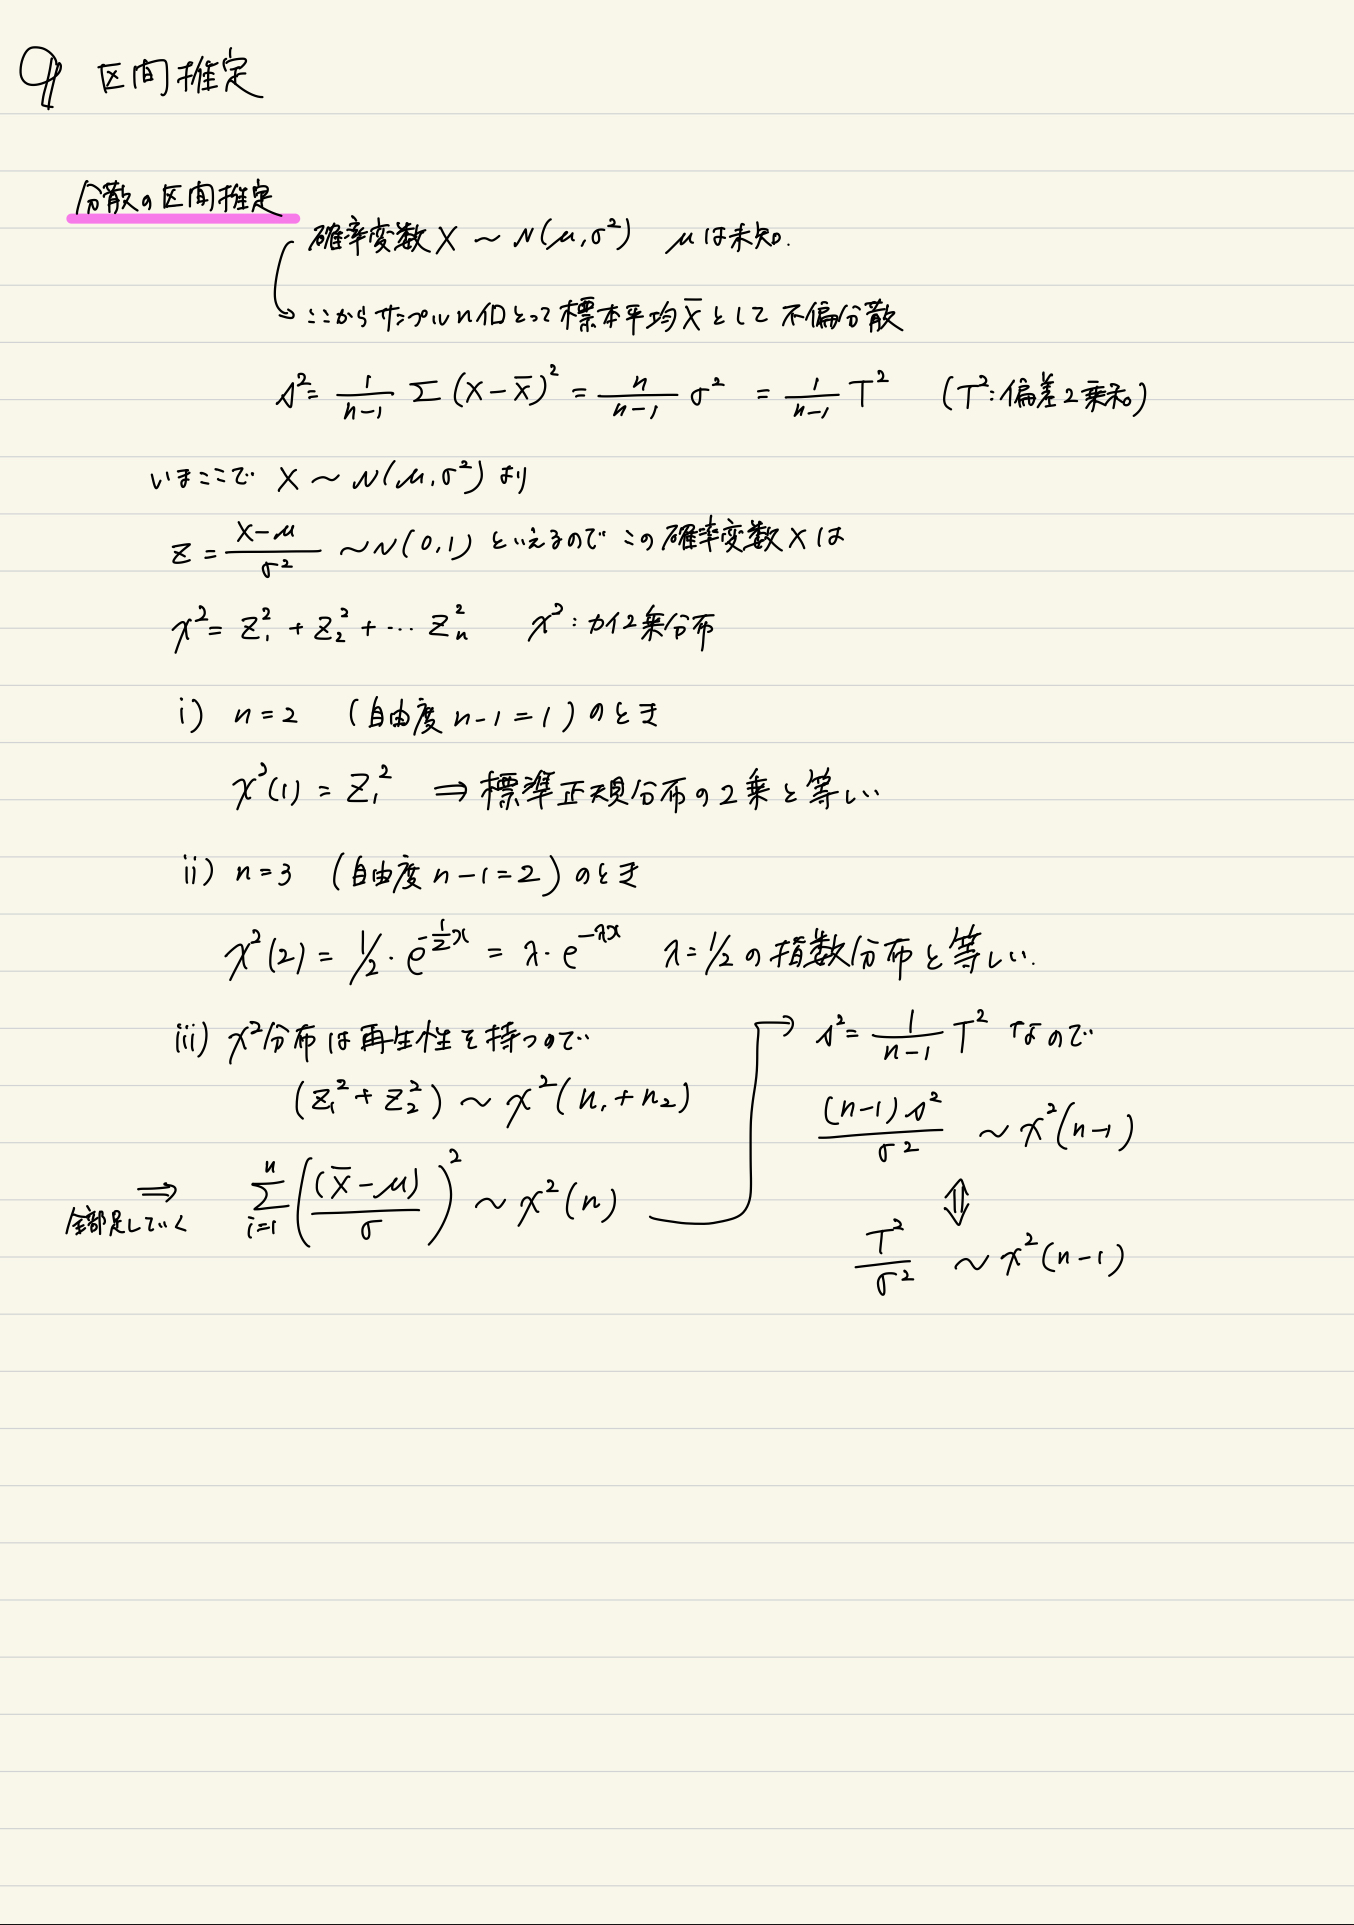 9 区間推定
分散の区間推定
確率変数 X ~ N(μ, σ²) μは未知.
ここからサンプルn個とって標本平均X̄として不偏分散
s² = 1/(n-1) Σ (X-X̄)² = n/(n-1) σ² = 1/(n-1) T² (T²: 偏差2乗和)
いまここで X ~ N(μ, σ²) より
Z = (X-μ)/σ² ~ N(0,1) といえるのでこの確率変数Xは
χ² = Z₁² + Z₂² + … Zₙ² χ²: カイ2乗分布
i) n=2 (自由度 n-1=1) のとき
χ²(1) = Z₁² ⇒ 標準正規分布の2乗と等しい
ii) n=3 (自由度 n-1=2) のとき
χ²(2) = 1/2・e^(-1/2 x) = λ・e^(-λx) λ=1/2の指数分布と等しい.
iii) χ²分布は再生性を持つので
(Z₁² + Z₂²) ~ χ²(n₁+n₂)
⇒ 全部足していく
Σ_{i=1}^{n} ((X̄-μ)/σ)² ~ χ²(n)
→ s² = 1/(n-1) T² なので
(n-1)s²/σ² ~ χ²(n-1)
⇕
T²/σ² ~ χ²(n-1)